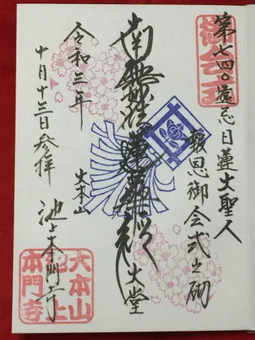 御会式
第七四〇遠忌日蓮大聖人
報恩御会式之砌
南無妙法蓮華経
大堂
令和三年
大本山
十月十三日参拝
池上本門寺
大本山
池上
本門寺